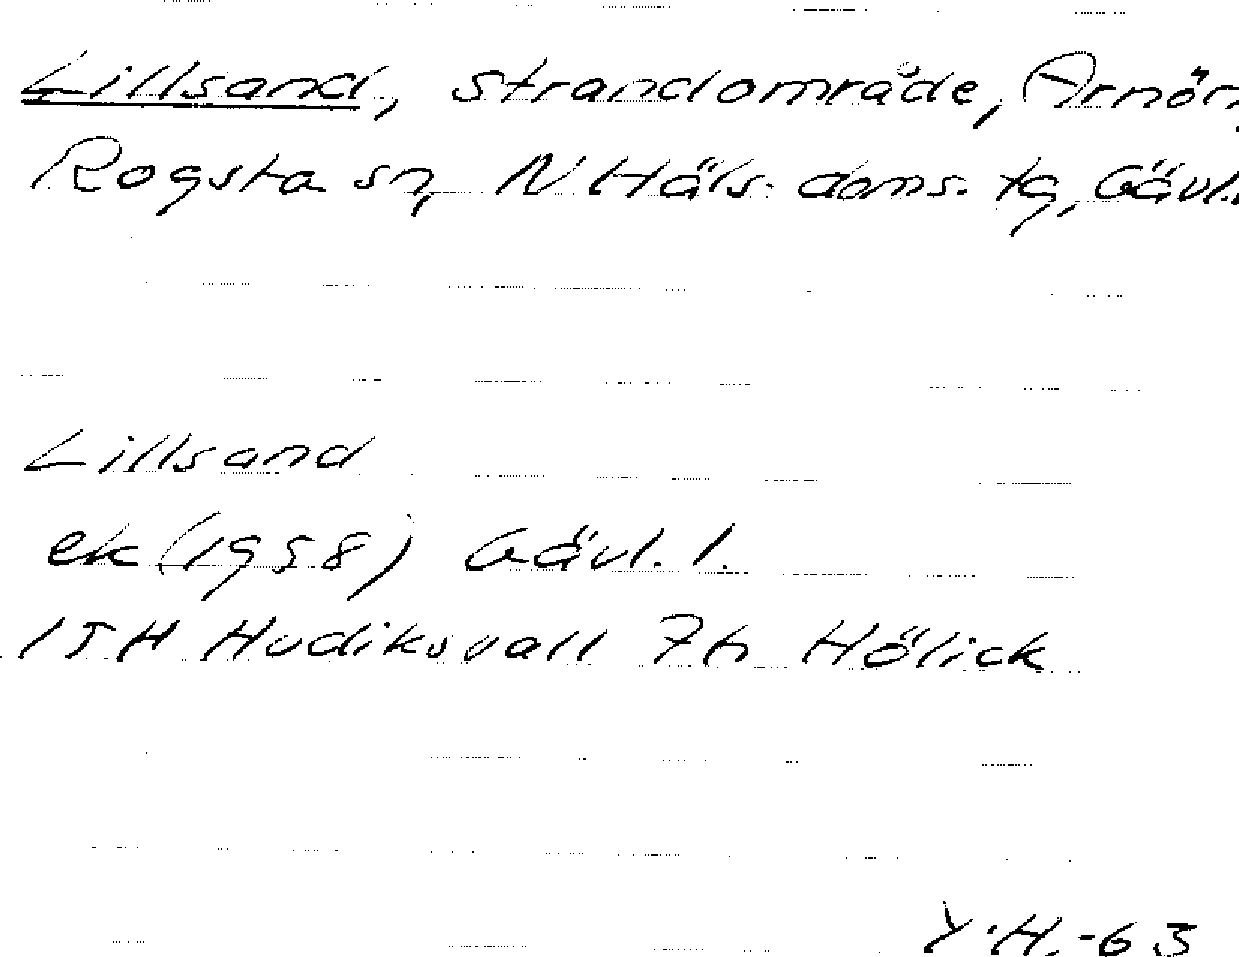 Lillsand, strandområde, Arnön,
Rogsta sn, N Häls. doms. tg, Gävl.
Lillsand
ek (1958) Gävl. l.
15H Hudiksvall 7h Hölick
Y.H.-63